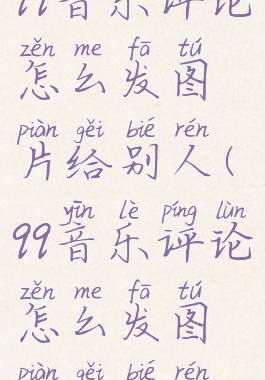 99音乐评论
zěn me fā tú
怎么发图
piàn gěi bié rén
片给别人(
yīn lè píng lùn
99音乐评论
zěn me fā tú
怎么发图
piàn gěi bié rén